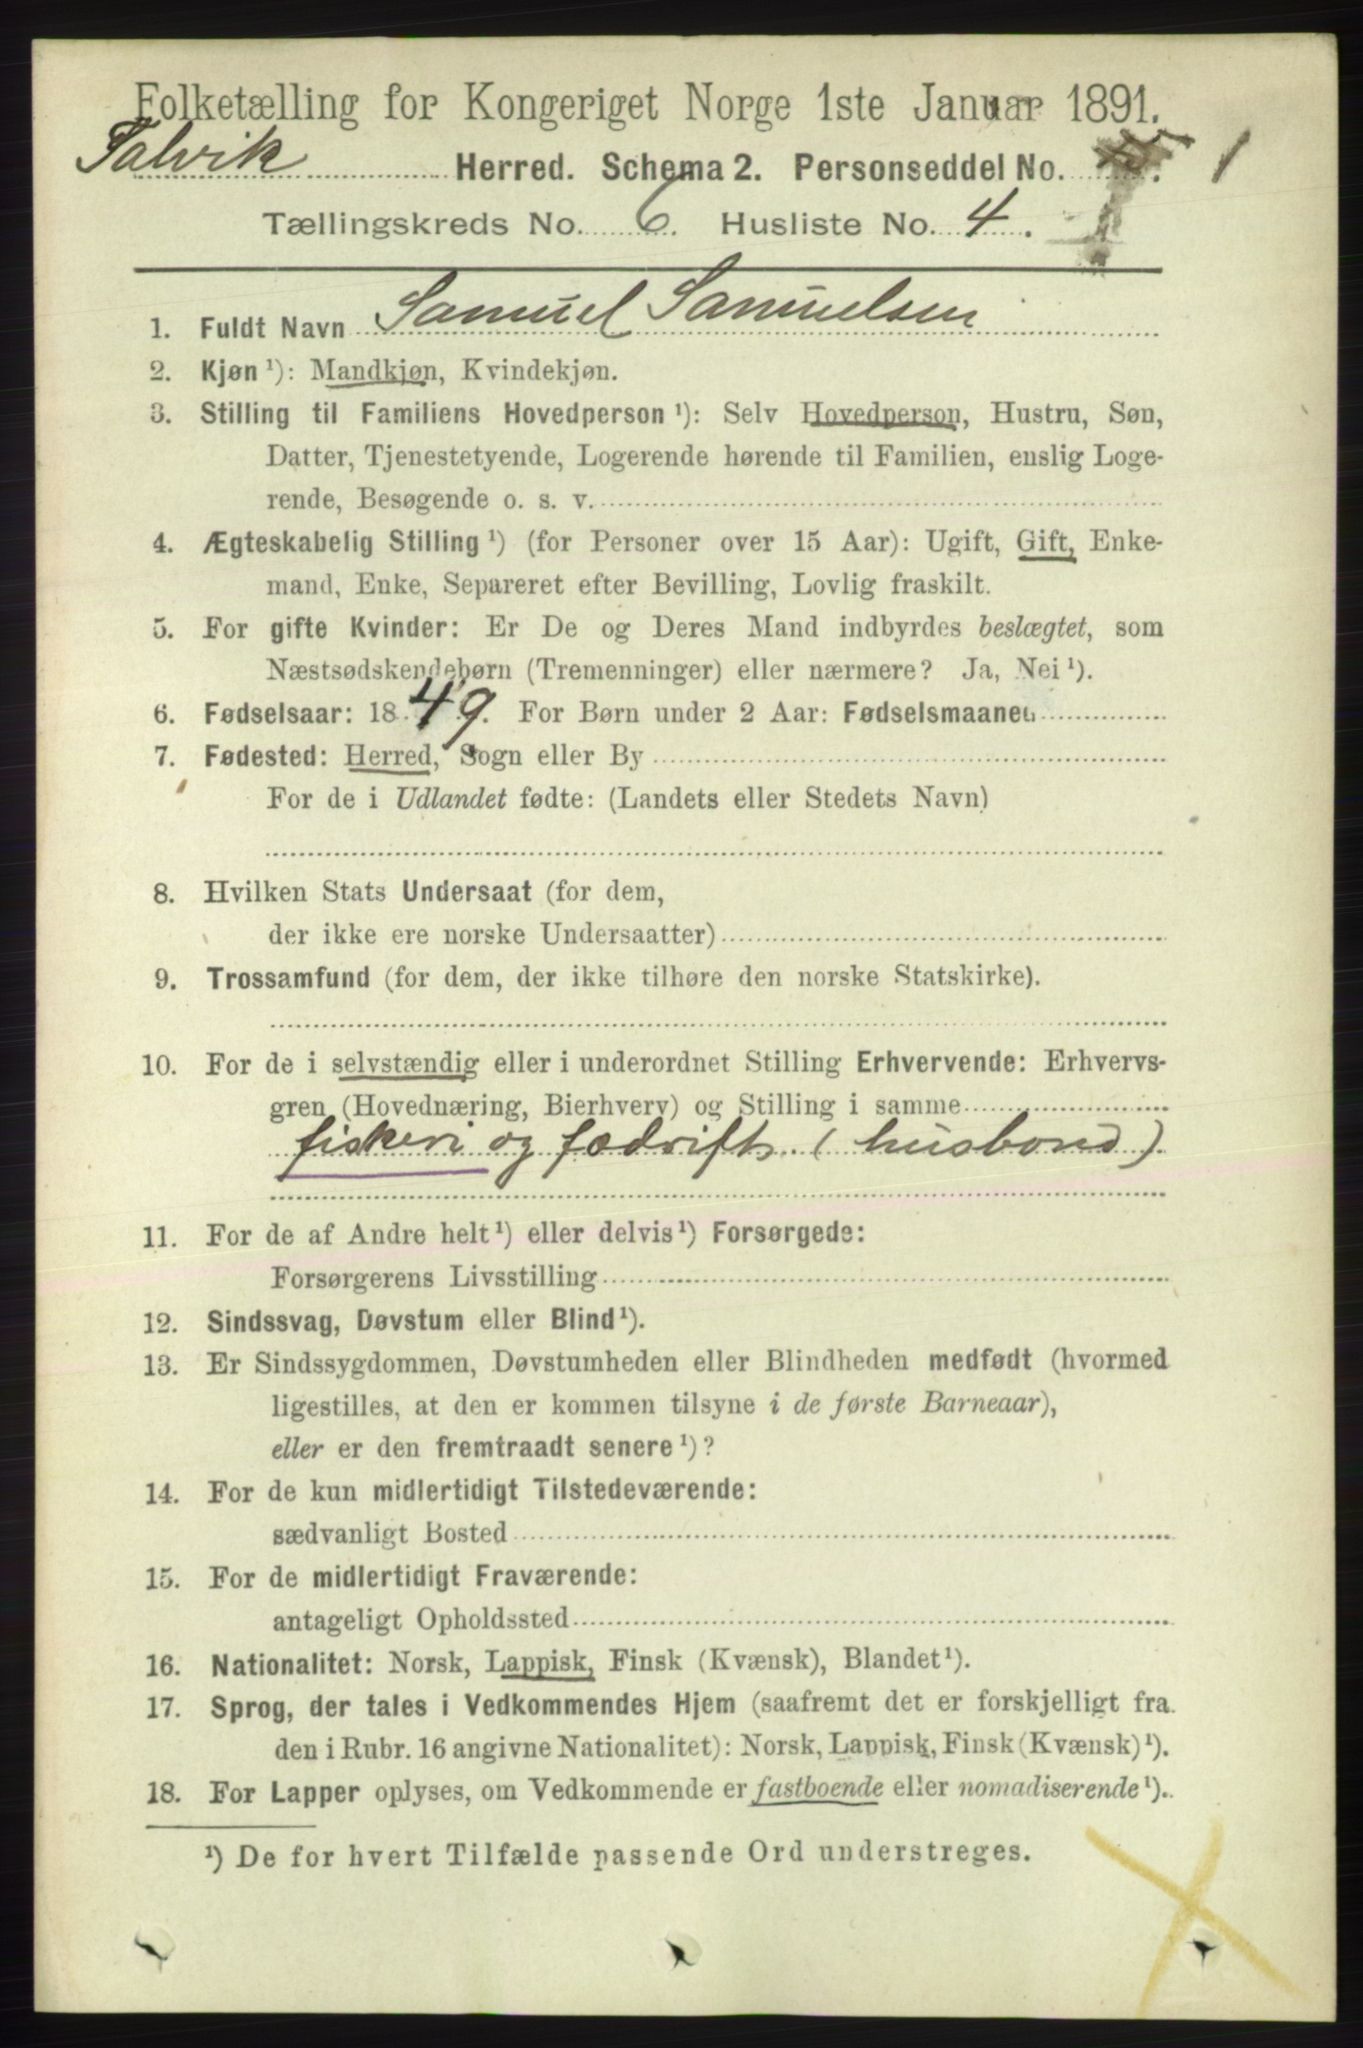 Folketælling for Kongeriget Norge 1ste Januar 1891.
Talvik Herred. Schema 2. Personseddel No. 1
Tællingskreds No. 6. Husliste No. 4.
1. Fuldt Navn Samuel Samuelsen
2. Kjøn ¹): Mandkjøn, Kvindekjøn.
3. Stilling til Familiens Hovedperson ¹): Selv Hovedperson, Hustru, Søn,
Datter, Tjenestetyende, Logerende hørende til Familien, enslig Loge-
rende, Besøgende o. s. v.
4. Ægteskabelig Stilling ¹) (for Personer over 15 Aar): Ugift, Gift, Enke-
mand, Enke, Separeret efter Bevilling, Lovlig fraskilt.
5. For gifte Kvinder: Er De og Deres Mand indbyrdes beslægtet, som
Næstsødskendebørn (Tremenninger) eller nærmere? Ja, Nei ¹).
6. Fødselsaar: 1849. For Børn under 2 Aar: Fødselsmaaned
7. Fødested: Herred, Sogn eller By
For de i Udlandet fødte: (Landets eller Stedets Navn)
8. Hvilken Stats Undersaat (for dem,
der ikke ere norske Undersaatter)
9. Trossamfund (for dem, der ikke tilhøre den norske Statskirke).
10. For de i selvstændig eller i underordnet Stilling Erhvervende: Erhvervs-
gren (Hovednæring, Bierhverv) og Stilling i samme
fiskeri og fædrift (husbond).
11. For de af Andre helt ¹) eller delvis ¹) Forsørgede:
Forsørgerens Livsstilling
12. Sindssvag, Døvstum eller Blind ¹).
13. Er Sindssygdommen, Døvstumheden eller Blindheden medfødt (hvormed
ligestilles, at den er kommen tilsyne i de første Barneaar),
eller er den fremtraadt senere ¹)?
14. For de kun midlertidigt Tilstedeværende:
sædvanligt Bosted
15. For de midlertidigt Fraværende:
antageligt Opholdssted
16. Nationalitet: Norsk, Lappisk, Finsk (Kvænsk), Blandet ¹).
17. Sprog, der tales i Vedkommendes Hjem (saafremt det er forskjelligt fra
den i Rubr. 16 angivne Nationalitet): Norsk, Lappisk, Finsk (Kvænsk) ¹).
18. For Lapper oplyses, om Vedkommende er fastboende eller nomadiserende ¹).
¹) De for hvert Tilfælde passende Ord understreges.